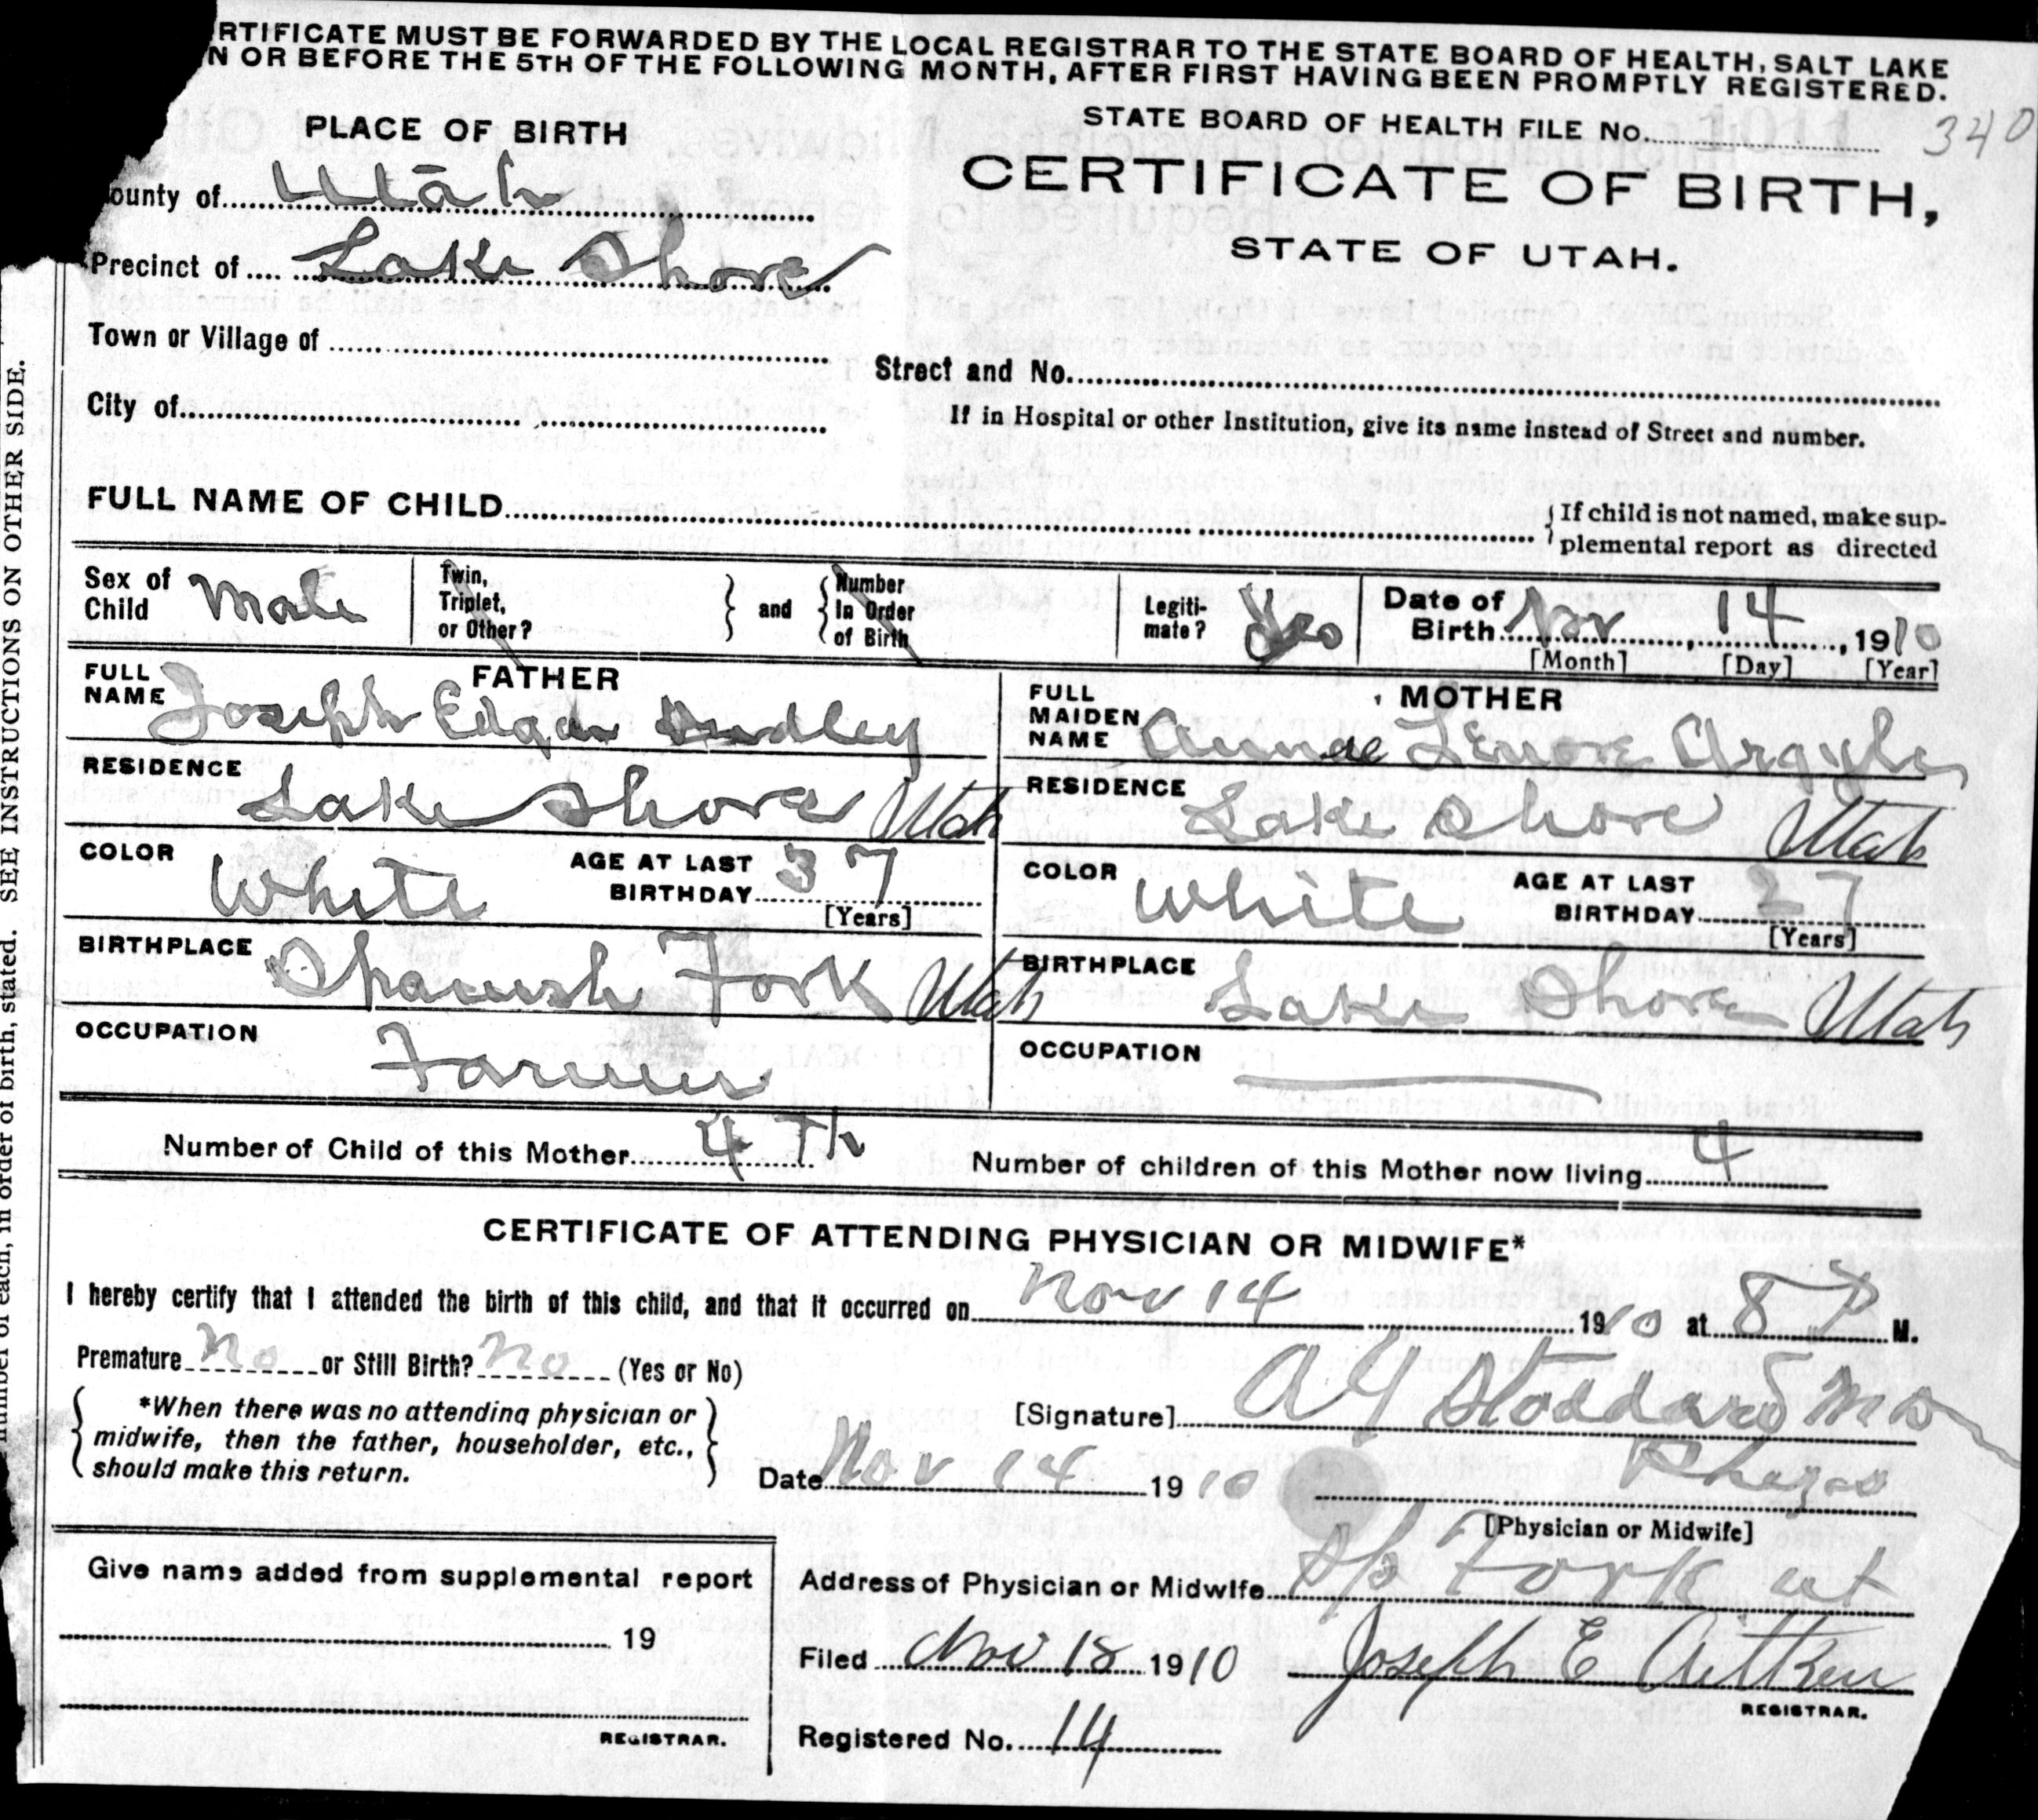 RTIFICATE MUST BE FORWARDED BY THE LOCAL REGISTRAR TO THE STATE BOARD OF HEALTH, SALT LAKE
N OR BEFORE THE 5TH OF THE FOLLOWING MONTH, AFTER FIRST HAVING BEEN PROMPTLY REGISTERED.
STATE BOARD OF HEALTH FILE No. 340
PLACE OF BIRTH
CERTIFICATE OF BIRTH,
STATE OF UTAH.
ounty of Utah
Precinct of Lake Shore
Town or Village of
Street and No.
City of
If in Hospital or other Institution, give its name instead of Street and number.
FULL NAME OF CHILD
If child is not named, make sup-
plemental report as directed
Sex of Child Male
Twin, Triplet, or Other?
and
Number In Order of Birth
Legiti-mate? Yes
Date of Birth Nov 14, 1910
[Month] [Day] [Year]
FATHER
FULL NAME Joseph Edgar Hudley
RESIDENCE Lake Shore Utah
COLOR White
AGE AT LAST BIRTHDAY 37
[Years]
BIRTHPLACE Spanish Fork Utah
OCCUPATION Farmer
MOTHER
FULL MAIDEN NAME Lenore Argyle
RESIDENCE Lake Shore Utah
COLOR White
AGE AT LAST BIRTHDAY 27
[Years]
BIRTHPLACE Lake Shore Utah
OCCUPATION
Number of Child of this Mother 4Th
Number of children of this Mother now living 4
CERTIFICATE OF ATTENDING PHYSICIAN OR MIDWIFE*
I hereby certify that I attended the birth of this child, and that it occurred on Nov 14 1910 at 8 P M.
Premature No or Still Birth? No (Yes or No)
*When there was no attending physician or
midwife, then the father, householder, etc.,
should make this return.
[Signature] A Y Stoddard MD
Date Nov 14 1910
[Physician or Midwife]
Give name added from supplemental report
19
REGISTRAR.
Address of Physician or Midwife Sp Fork ut
Filed Nov 18 1910 Joseph E Aitken
REGISTRAR.
Registered No. 14
SEE INSTRUCTIONS ON OTHER SIDE.
number of each, in order of birth, stated.